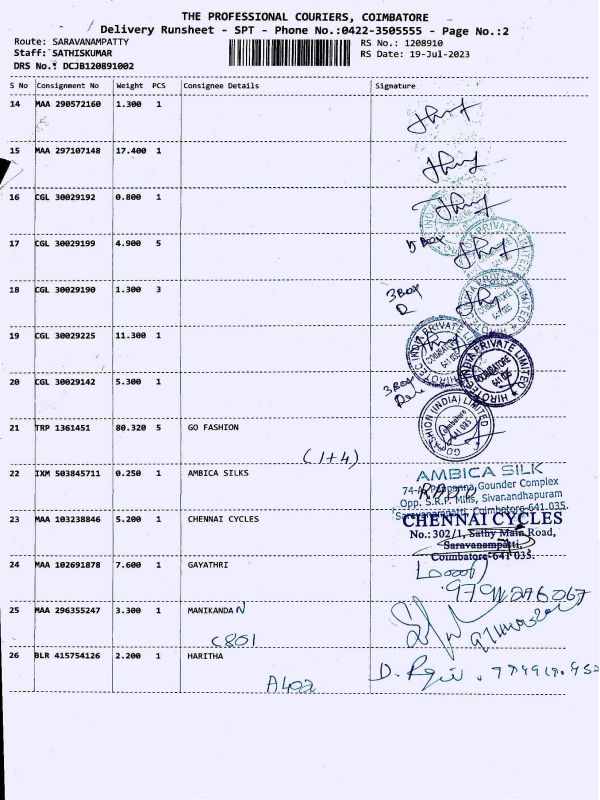 THE PROFESSIONAL COURIERS, COIMBATORE
Delivery Runsheet - SPT - Phone No.:0422-3505555 - Page No.:2
Route: SARAVANAMPATTY
RS No.: 1208910
Staff: SATHISKUMAR
RS Date: 19-Jul-2023
DRS No.: DCJB120891002
S No Consignment No Weight PCS Consignee Details Signature
14 MAA 290572160 1.300 1
15 MAA 297107148 17.400 1
16 CGL 30029192 0.800 1
17 CGL 30029199 4.900 5
BOX
18 CGL 30029190 1.300 3
3 BOX
19 CGL 30029225 11.300 1
20 CGL 30029142 5.300 1
3 BOX
HIROTEC INDIA PRIVATE LIMITED
COIMBATORE
641 035
21 TRP 1361451 80.320 5 GO FASHION
(1+4)
GO FASHION (INDIA) LIMITED
Coimbatore
641 035
22 IXM 503845711 0.250 1 AMBICA SILKS
AMBICA SILK
Gounder Complex
Opp. S.R.P. Mills, Sivanandhapuram
Saravanampatti, Coimbatore-641 035.
23 MAA 103238846 5.200 1 CHENNAI CYCLES
CHENNAI CYCLES
No.: 302/1, Sathy Main Road,
Saravanampatti,
Coimbatore-641 035.
24 MAA 102691878 7.600 1 GAYATHRI
25 MAA 296355247 3.300 1 MANIKANDAN
C801
26 BLR 415754126 2.200 1 HARITHA
A402